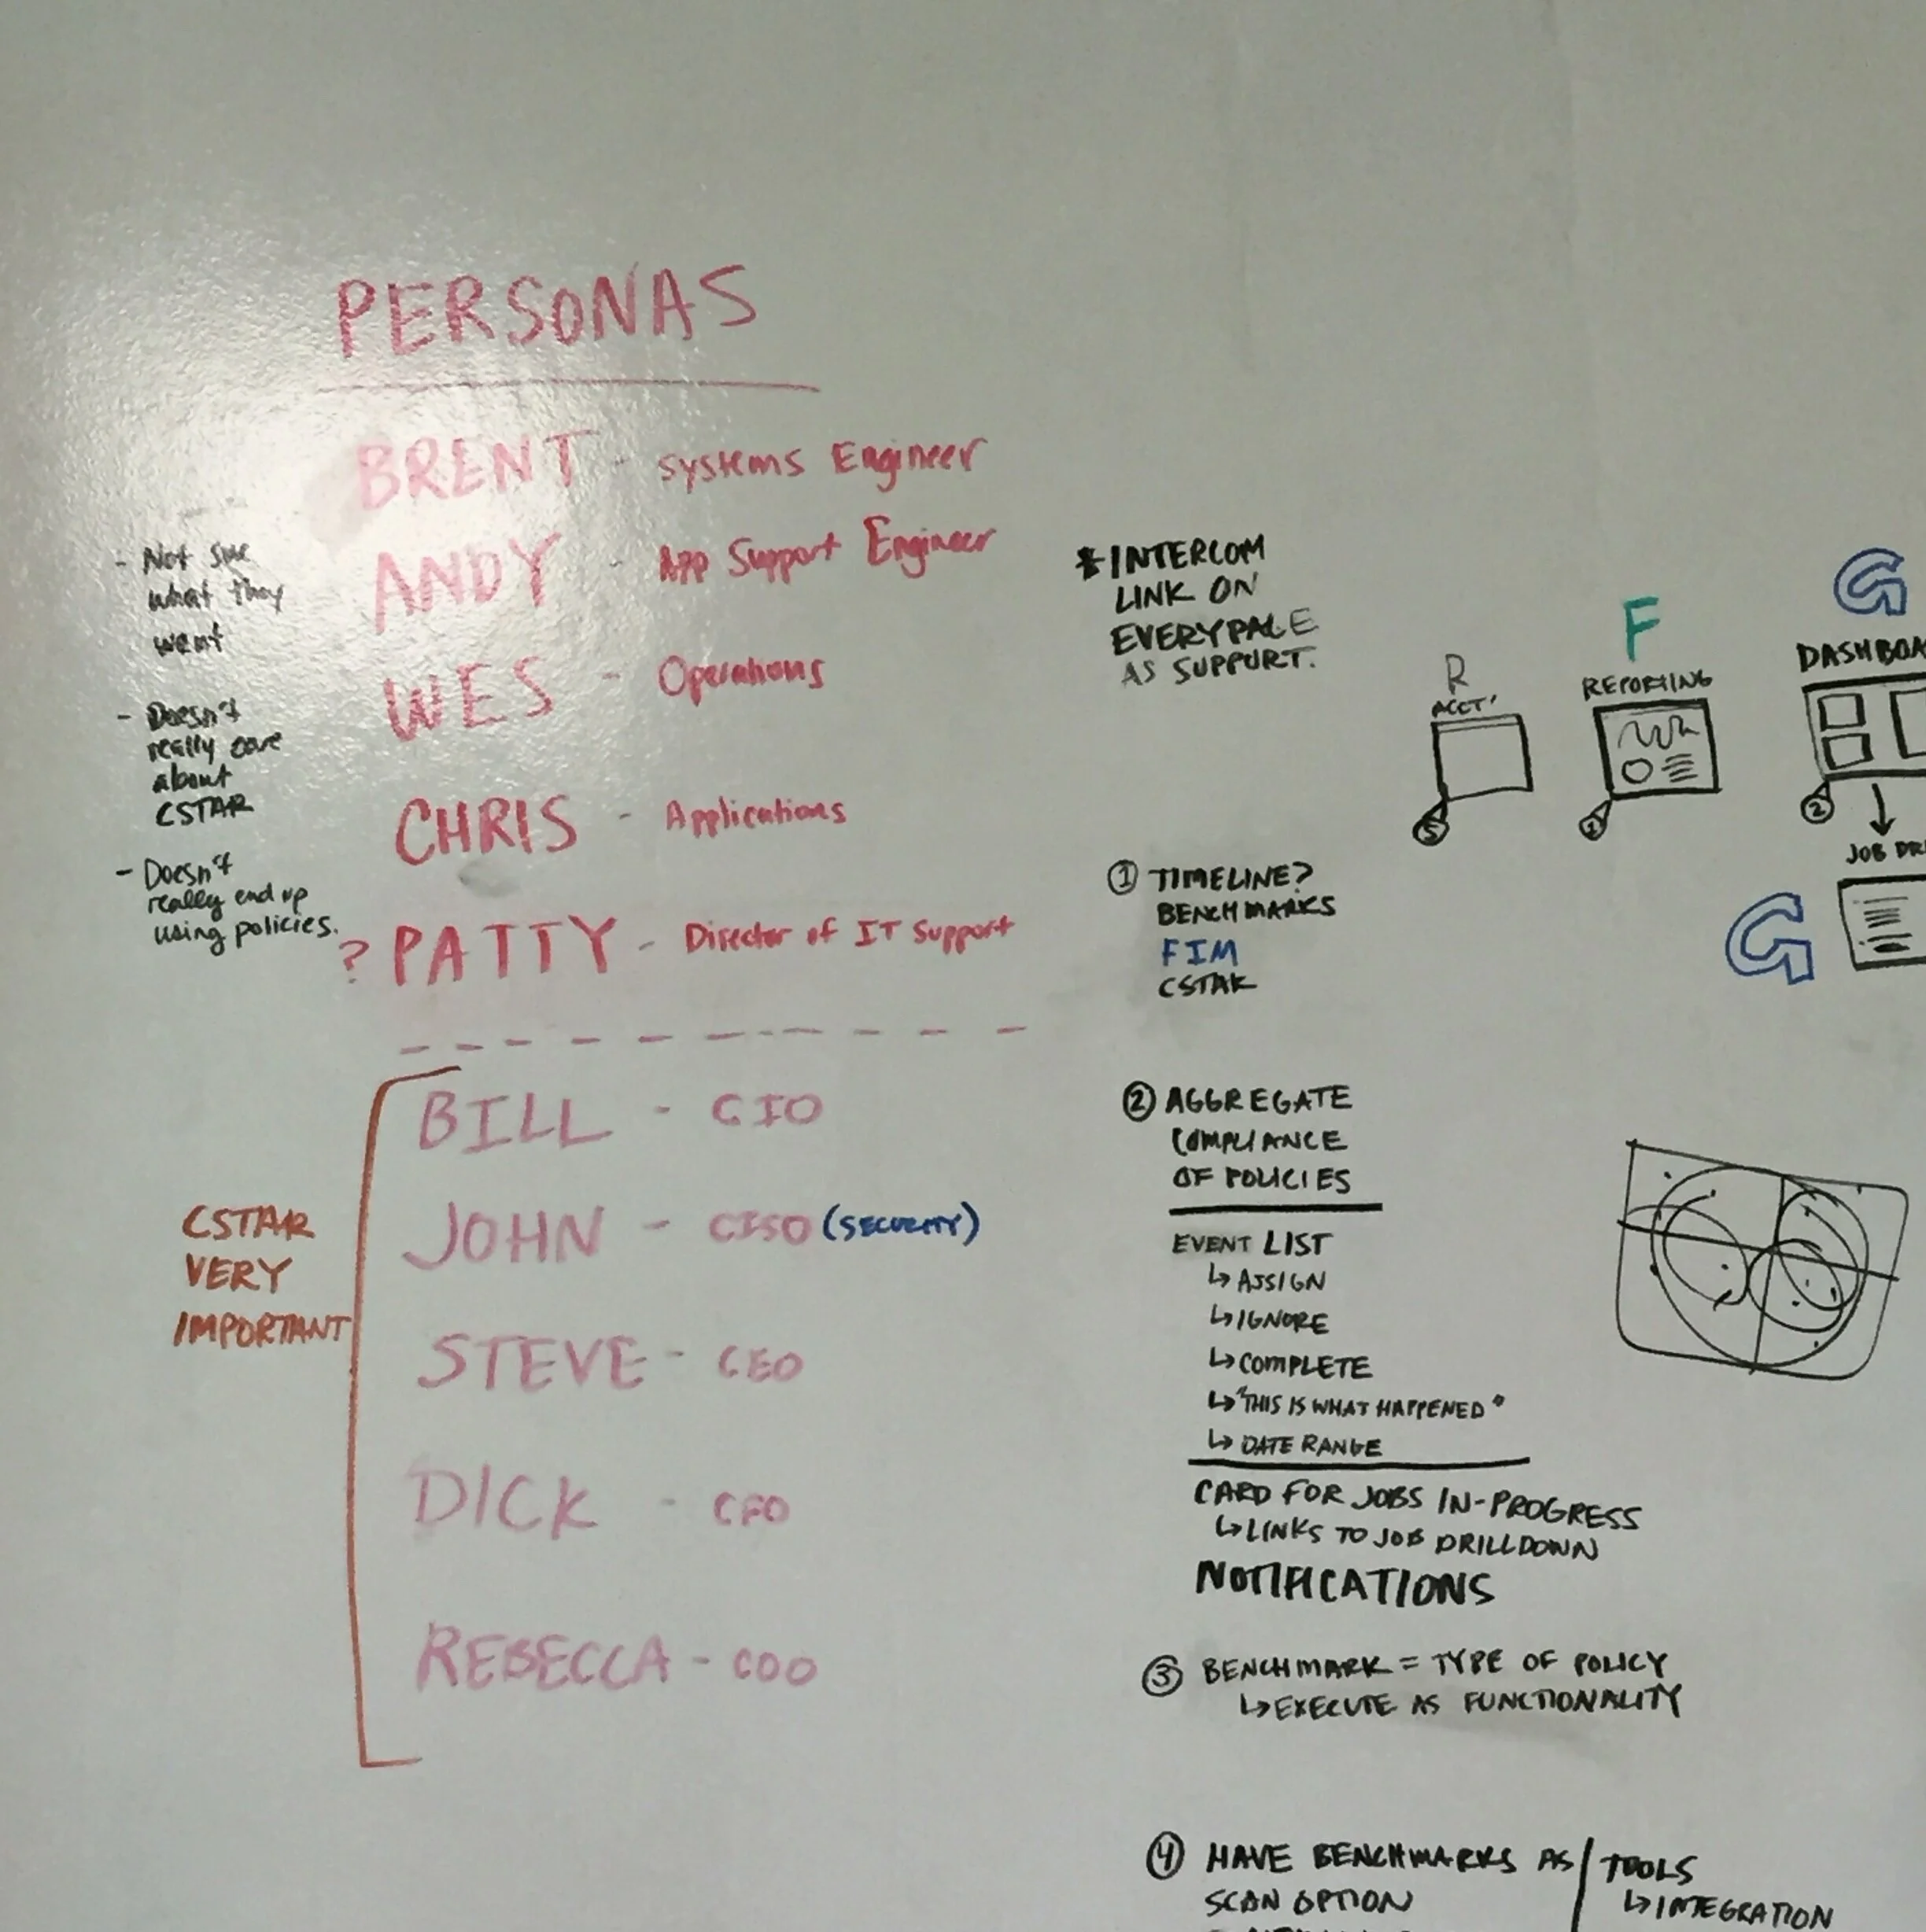 PERSONAS
BRENT - systems Engineer
ANDY - App Support Engineer
WES - Operations
CHRIS - Applications
? PATTY - Director of IT Support
- Not sure
what they
want
- Doesn't
really care
about
CSTAR
- Doesn't
really end up
using policies.
BILL - CIO
JOHN - CISO (SECURITY)
STEVE - CEO
DICK - CFO
REBECCA - COO
CSTAR
VERY
IMPORTANT
* INTERCOM
LINK ON
EVERYPAGE
AS SUPPORT.
R
ACCT'
5
F
REPORTING
1
G
DASHBOA
2
JOB DR
G
1 TIMELINE?
BENCHMARKS
FIM
CSTAR
2 AGGREGATE
COMPLIANCE
OF POLICIES
EVENT LIST
↳ ASSIGN
↳ IGNORE
↳ COMPLETE
↳ "THIS IS WHAT HAPPENED"
↳ DATE RANGE
CARD FOR JOBS IN-PROGRESS
↳ LINKS TO JOB DRILLDOWN
NOTIFICATIONS
3 BENCHMARK = TYPE OF POLICY
↳ EXECUTE AS FUNCTIONALITY
4 HAVE BENCHMARKS AS
SCAN OPTION
TOOLS
↳ INTEGRATION